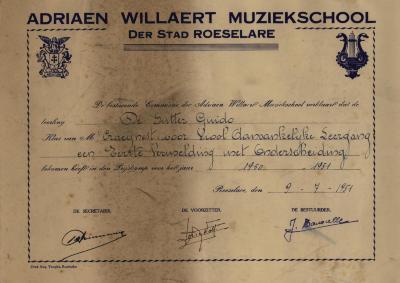 ADRIAEN WILLAERT MUZIEKSCHOOL
DER STAD ROESELARE
De bestuurende Commissie der Adriaen Willaert Muziekschool verklaart dat de
leerling De Sutter Guido
Klas van Mr Craeynest voor Viool Aanvankelijke Leergang
een Eerste Vermelding met Onderscheiding
bekomen heeft in den Prijskamp voor het jaar 1950 - 1951
Roeselare, den 9 - 7 - 1951
DE SECRETARIS, DE VOORZITTER, DE BESTUURDER,